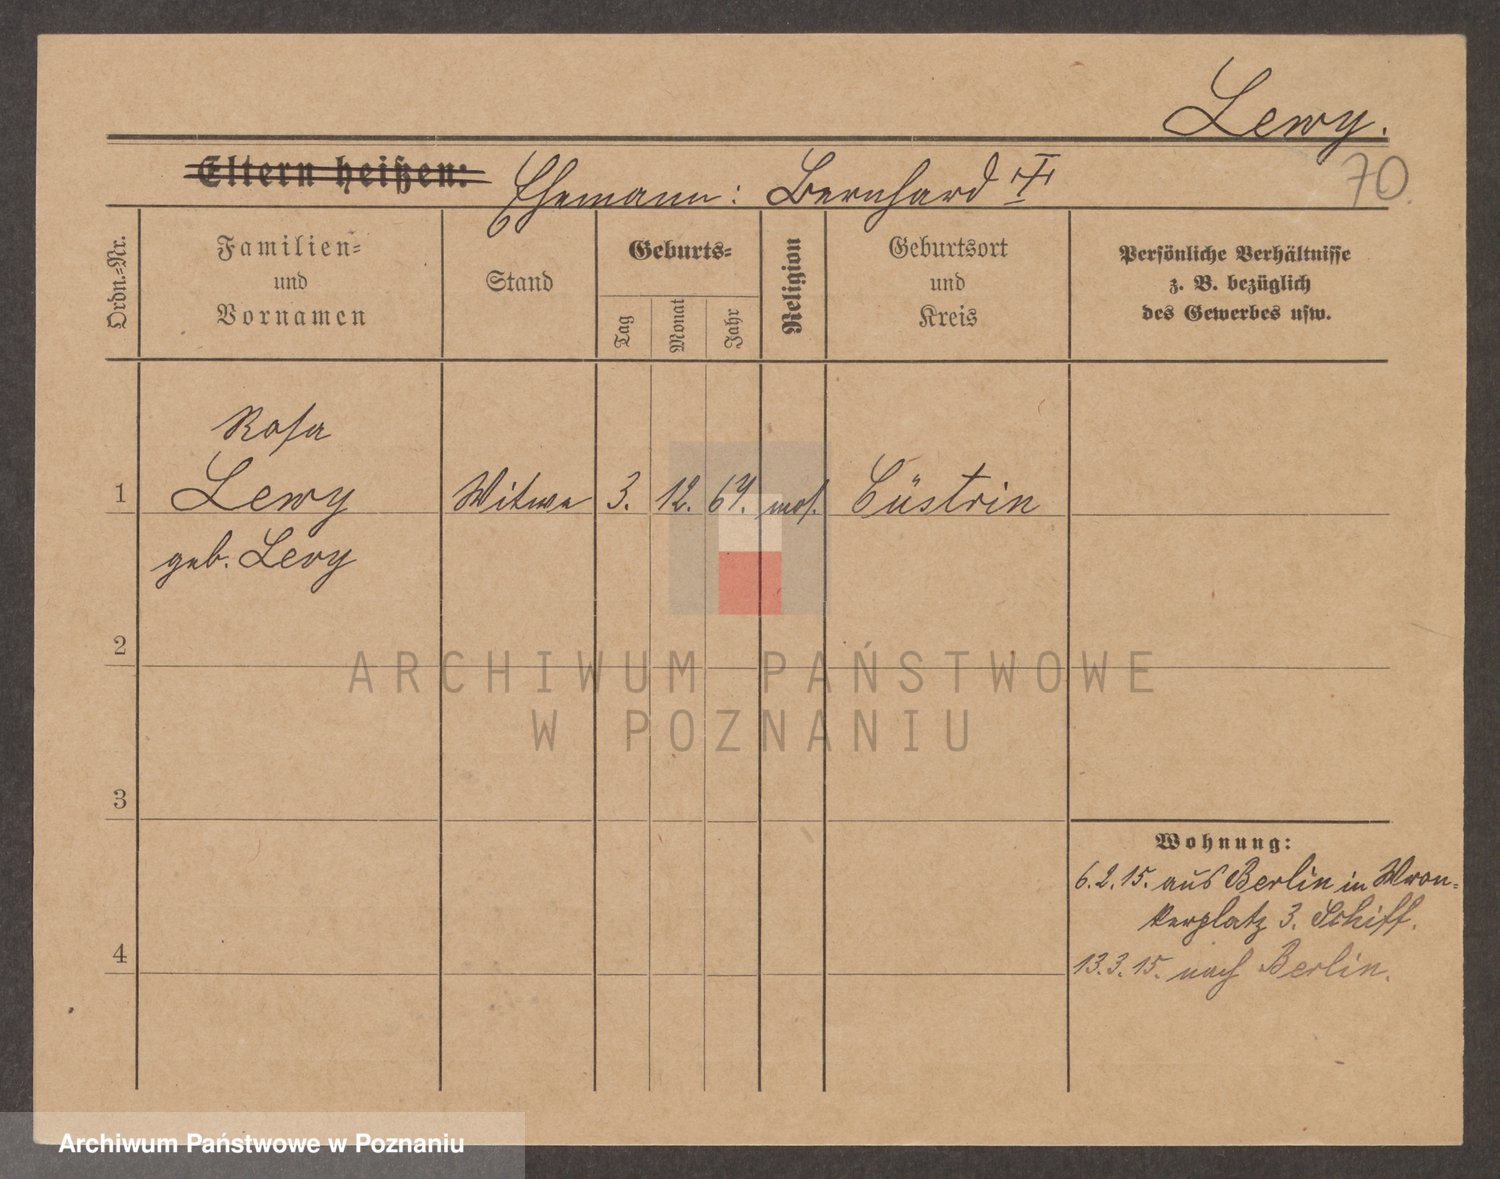 Lewy.
70.
Eltern heißen: Ehemann: Bernhard †
Ordn.=Nr.
Familien=
und
Vornamen
Stand
Geburts=
Tag
Monat
Jahr
Religion
Geburtsort
und
Kreis
Persönliche Verhältnisse
z. B. bezüglich
des Gewerbes usw.
Rosa
1 Lewy Witwe 3. 12. mos. Cüstrin
geb. Levy
2
3
4
Wohnung:
6.2.15. aus Berlin in Wron=
kerplatz 3. Schiff.
13.3.15. nach Berlin.
ARCHIWUM PAŃSTWOWE
W POZNANIU
Archiwum Państwowe w Poznaniu